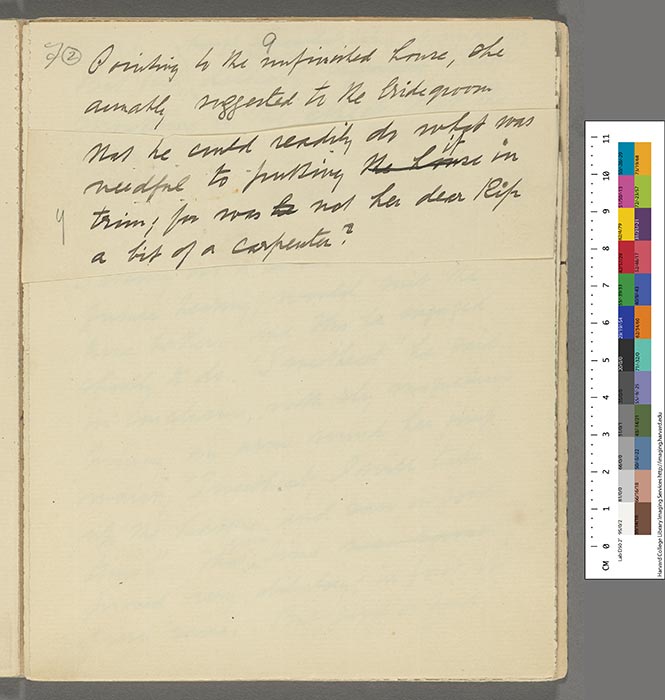 2
9
Pointing to the unfinished house, she
amiably suggested to the bridegroom
that he could readily do what was
it
needful to putting the house in
trim; for was he not her dear Rip
y
a bit of a carpenter?
11
10
9
8
7
6
5
4
3
2
1
CM 0
Harvard College Library Imaging Services http://imaging.harvard.edu